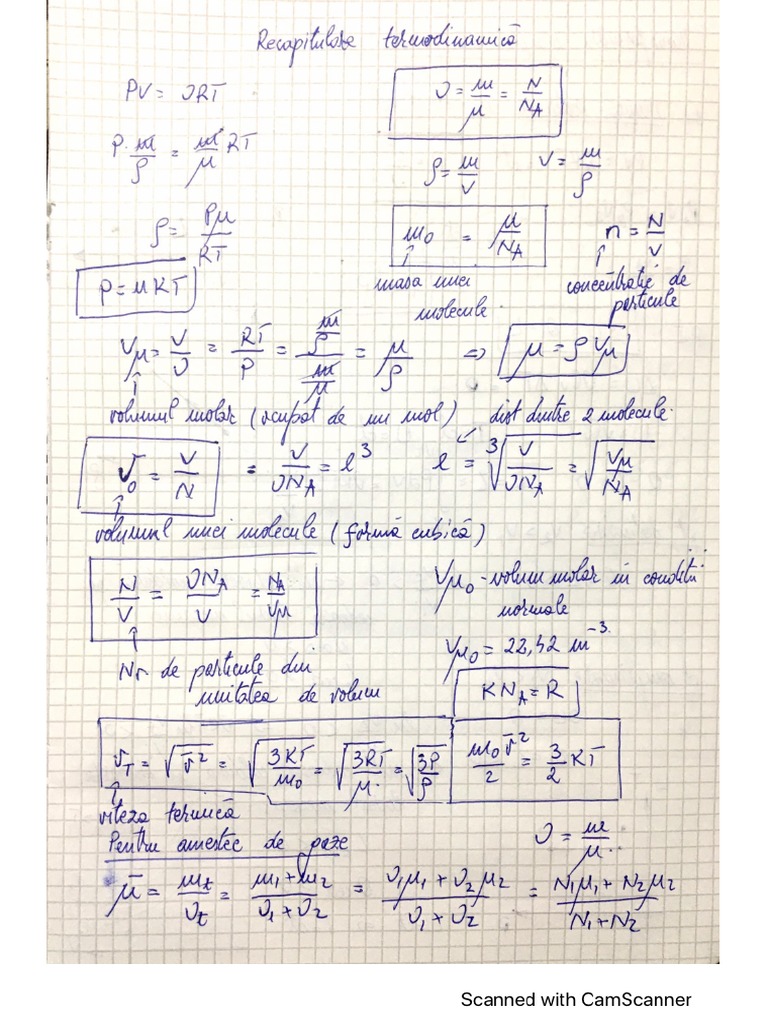 Recapitulare termodinamică
PV = νRT
ν = m/μ = N/N_A
P · m/ρ = m/μ RT
ρ = m/V   V = m/ρ
ρ = Pμ/RT
m₀ = μ/N_A   n = N/V
P = nKT
masa unei molecule
concentrație de particule
Vμ = V/ν = RT/P = (m/ρ)/(m/μ) = μ/ρ ⇒ μ = ρVμ
volumul molar (ocupat de un mol)   dist dintre 2 molecule.
V₀ = V/N = V/νN_A = l³   l = ∛(V/νN_A) = √(Vμ/N_A)
volumul unei molecule (formă cubică)
N/V = νN_A/V = N_A/Vμ
Vμ₀ - volum molar în condiții normale
Vμ₀ = 22,42 m⁻³.
Nr de particule din unitatea de volum
KN_A = R
v_T = √(v̄²) = √(3KT/m₀) = √(3RT/μ) = √(3P/ρ)
m₀v̄²/2 = 3/2 KT
viteza termică
Pentru amestec de gaze
ν = m/μ
μ̄ = m_t/ν_t = (m₁+m₂)/(ν₁+ν₂) = (ν₁μ₁+ν₂μ₂)/(ν₁+ν₂) = (N₁μ₁+N₂μ₂)/(N₁+N₂)
Scanned with CamScanner